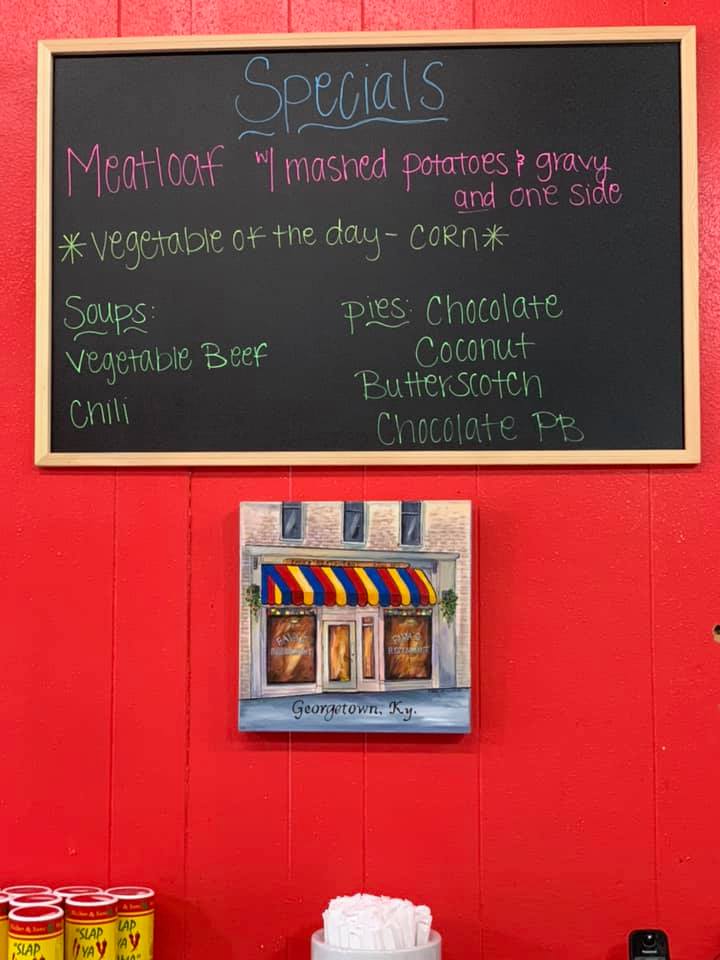 Specials
Meatloaf w/ mashed potatoes & gravy
and one side
*vegetable of the day - corn*
Soups:
Vegetable Beef
Chili
Pies: Chocolate
Coconut
Butterscotch
Chocolate PB
Georgetown, Ky.
"SLAP
"SLAP
YA
LAP
YA